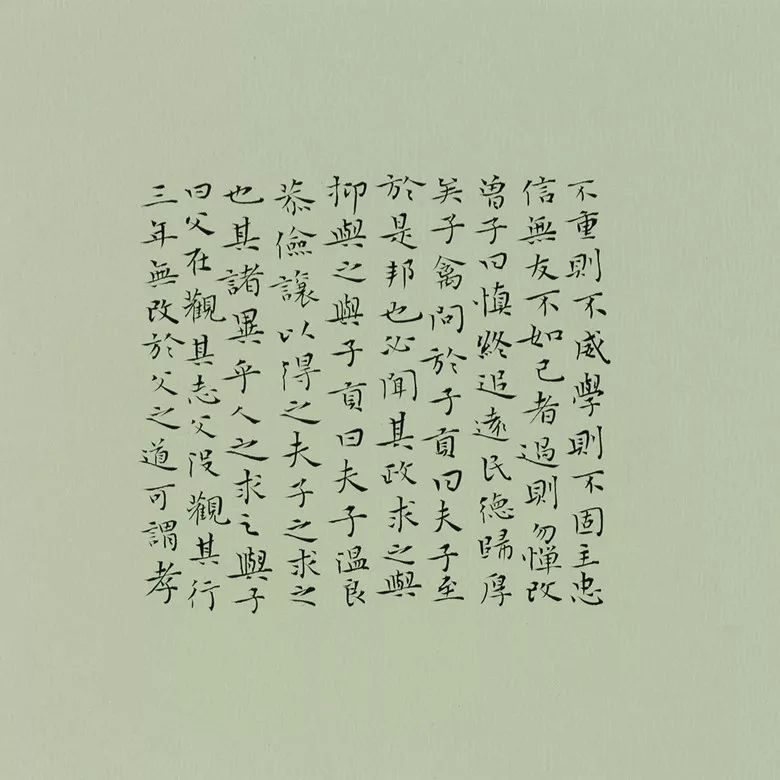 不重則不威學則不固主忠
信無友不如己者過則勿憚改
曾子曰慎終追遠民德歸厚
矣子禽問於子貢曰夫子至
於是邦也必聞其政求之與
抑與之與子貢曰夫子溫良
恭儉讓以得之夫子之求之
也其諸異乎人之求之與子
曰父在觀其志父沒觀其行
三年無改於父之道可謂孝